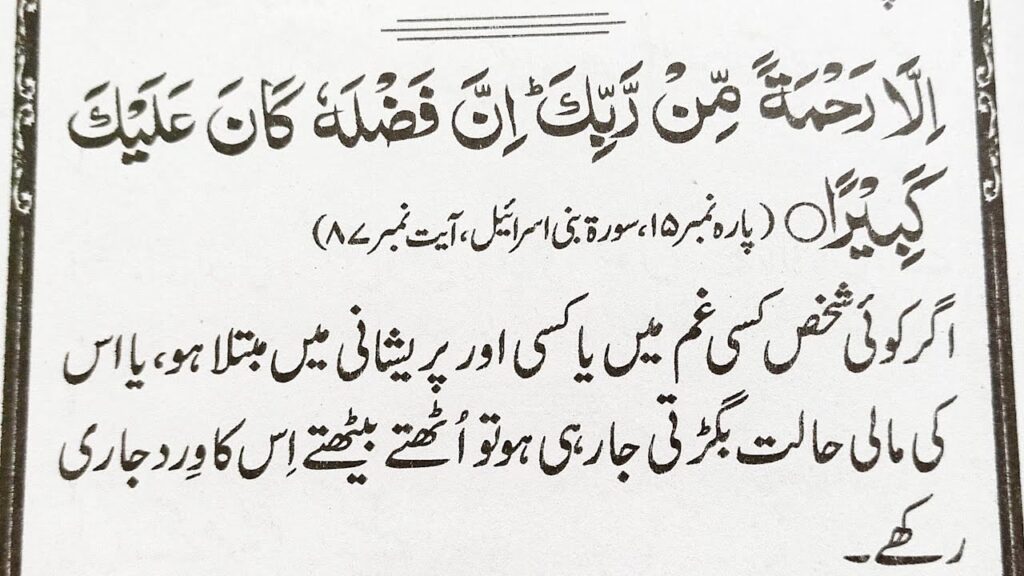 اِلَّا رَحْمَةً مِّنْ رَّبِّكَ ؕ اِنَّ فَضْلَهٗ كَانَ عَلَيْكَ
كَبِيْرًا ○ (پارہ نمبر ۱۵، سورۃ بنی اسرائیل، آیت نمبر ۸۷)
اگر کوئی شخص کسی غم میں یا کسی اور پریشانی میں مبتلا ہو، یا اس
کی مالی حالت بگڑتی جارہی ہو تو اُٹھتے بیٹھتے اِس کا وِرد جاری
رکھے۔